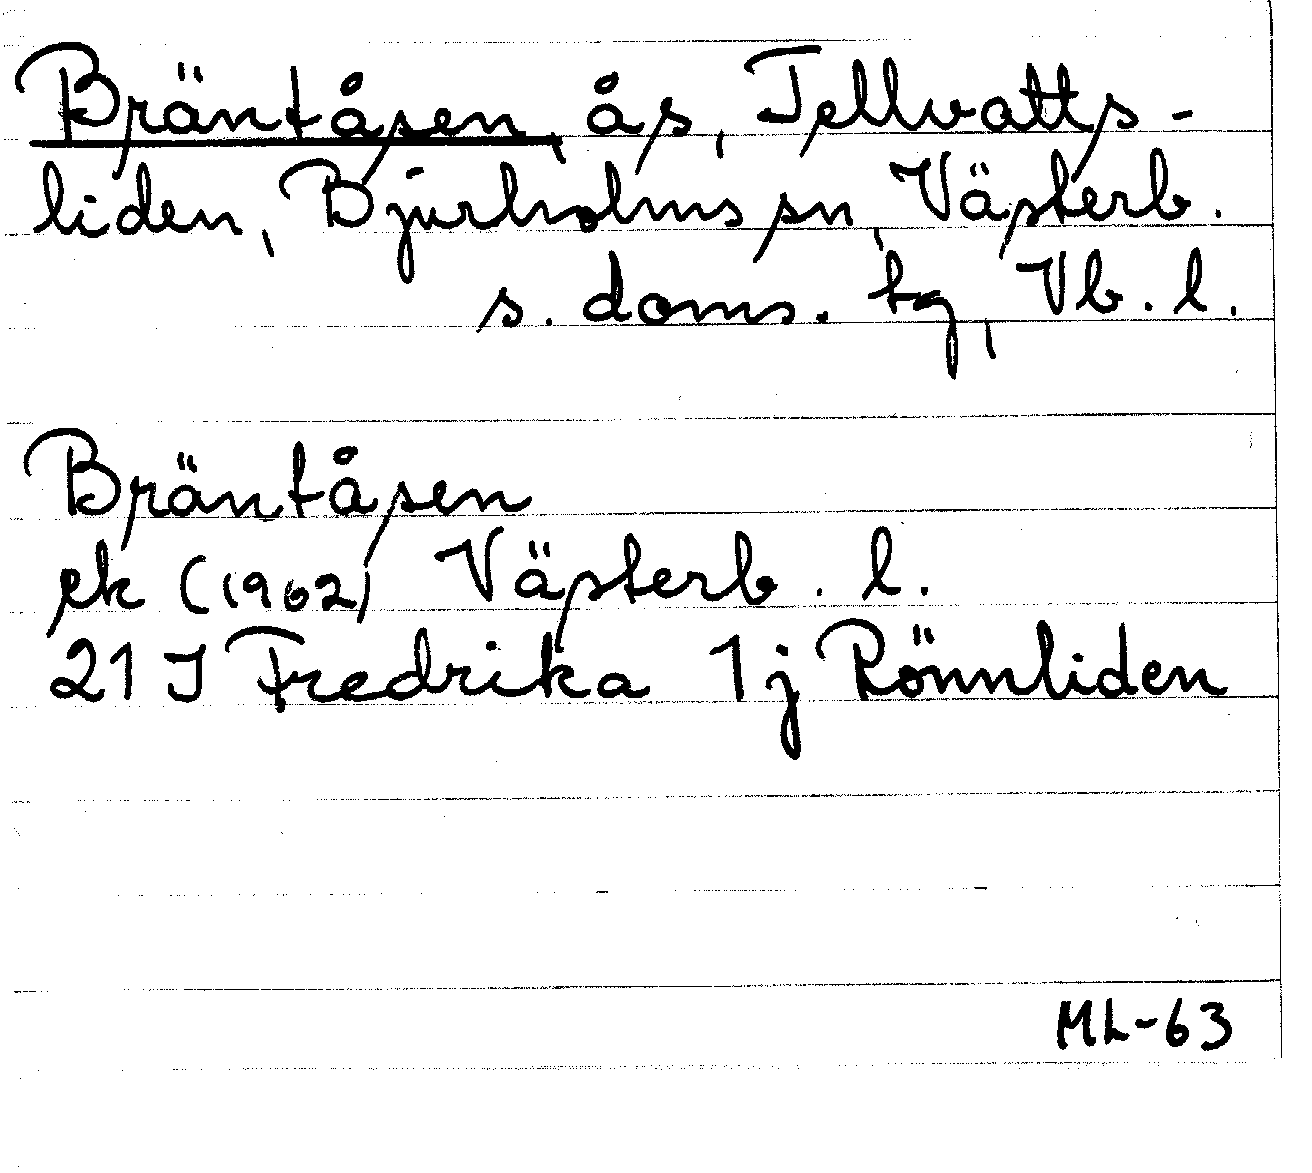 Bräntåsen, ås, Tellvatts-
liden, Bjurholms sn, Västerb.
s. doms. tg, Vb. l.
Bräntåsen
ek (1962) Västerb. l.
21 J Fredrika 1j Rönnliden
ML-63